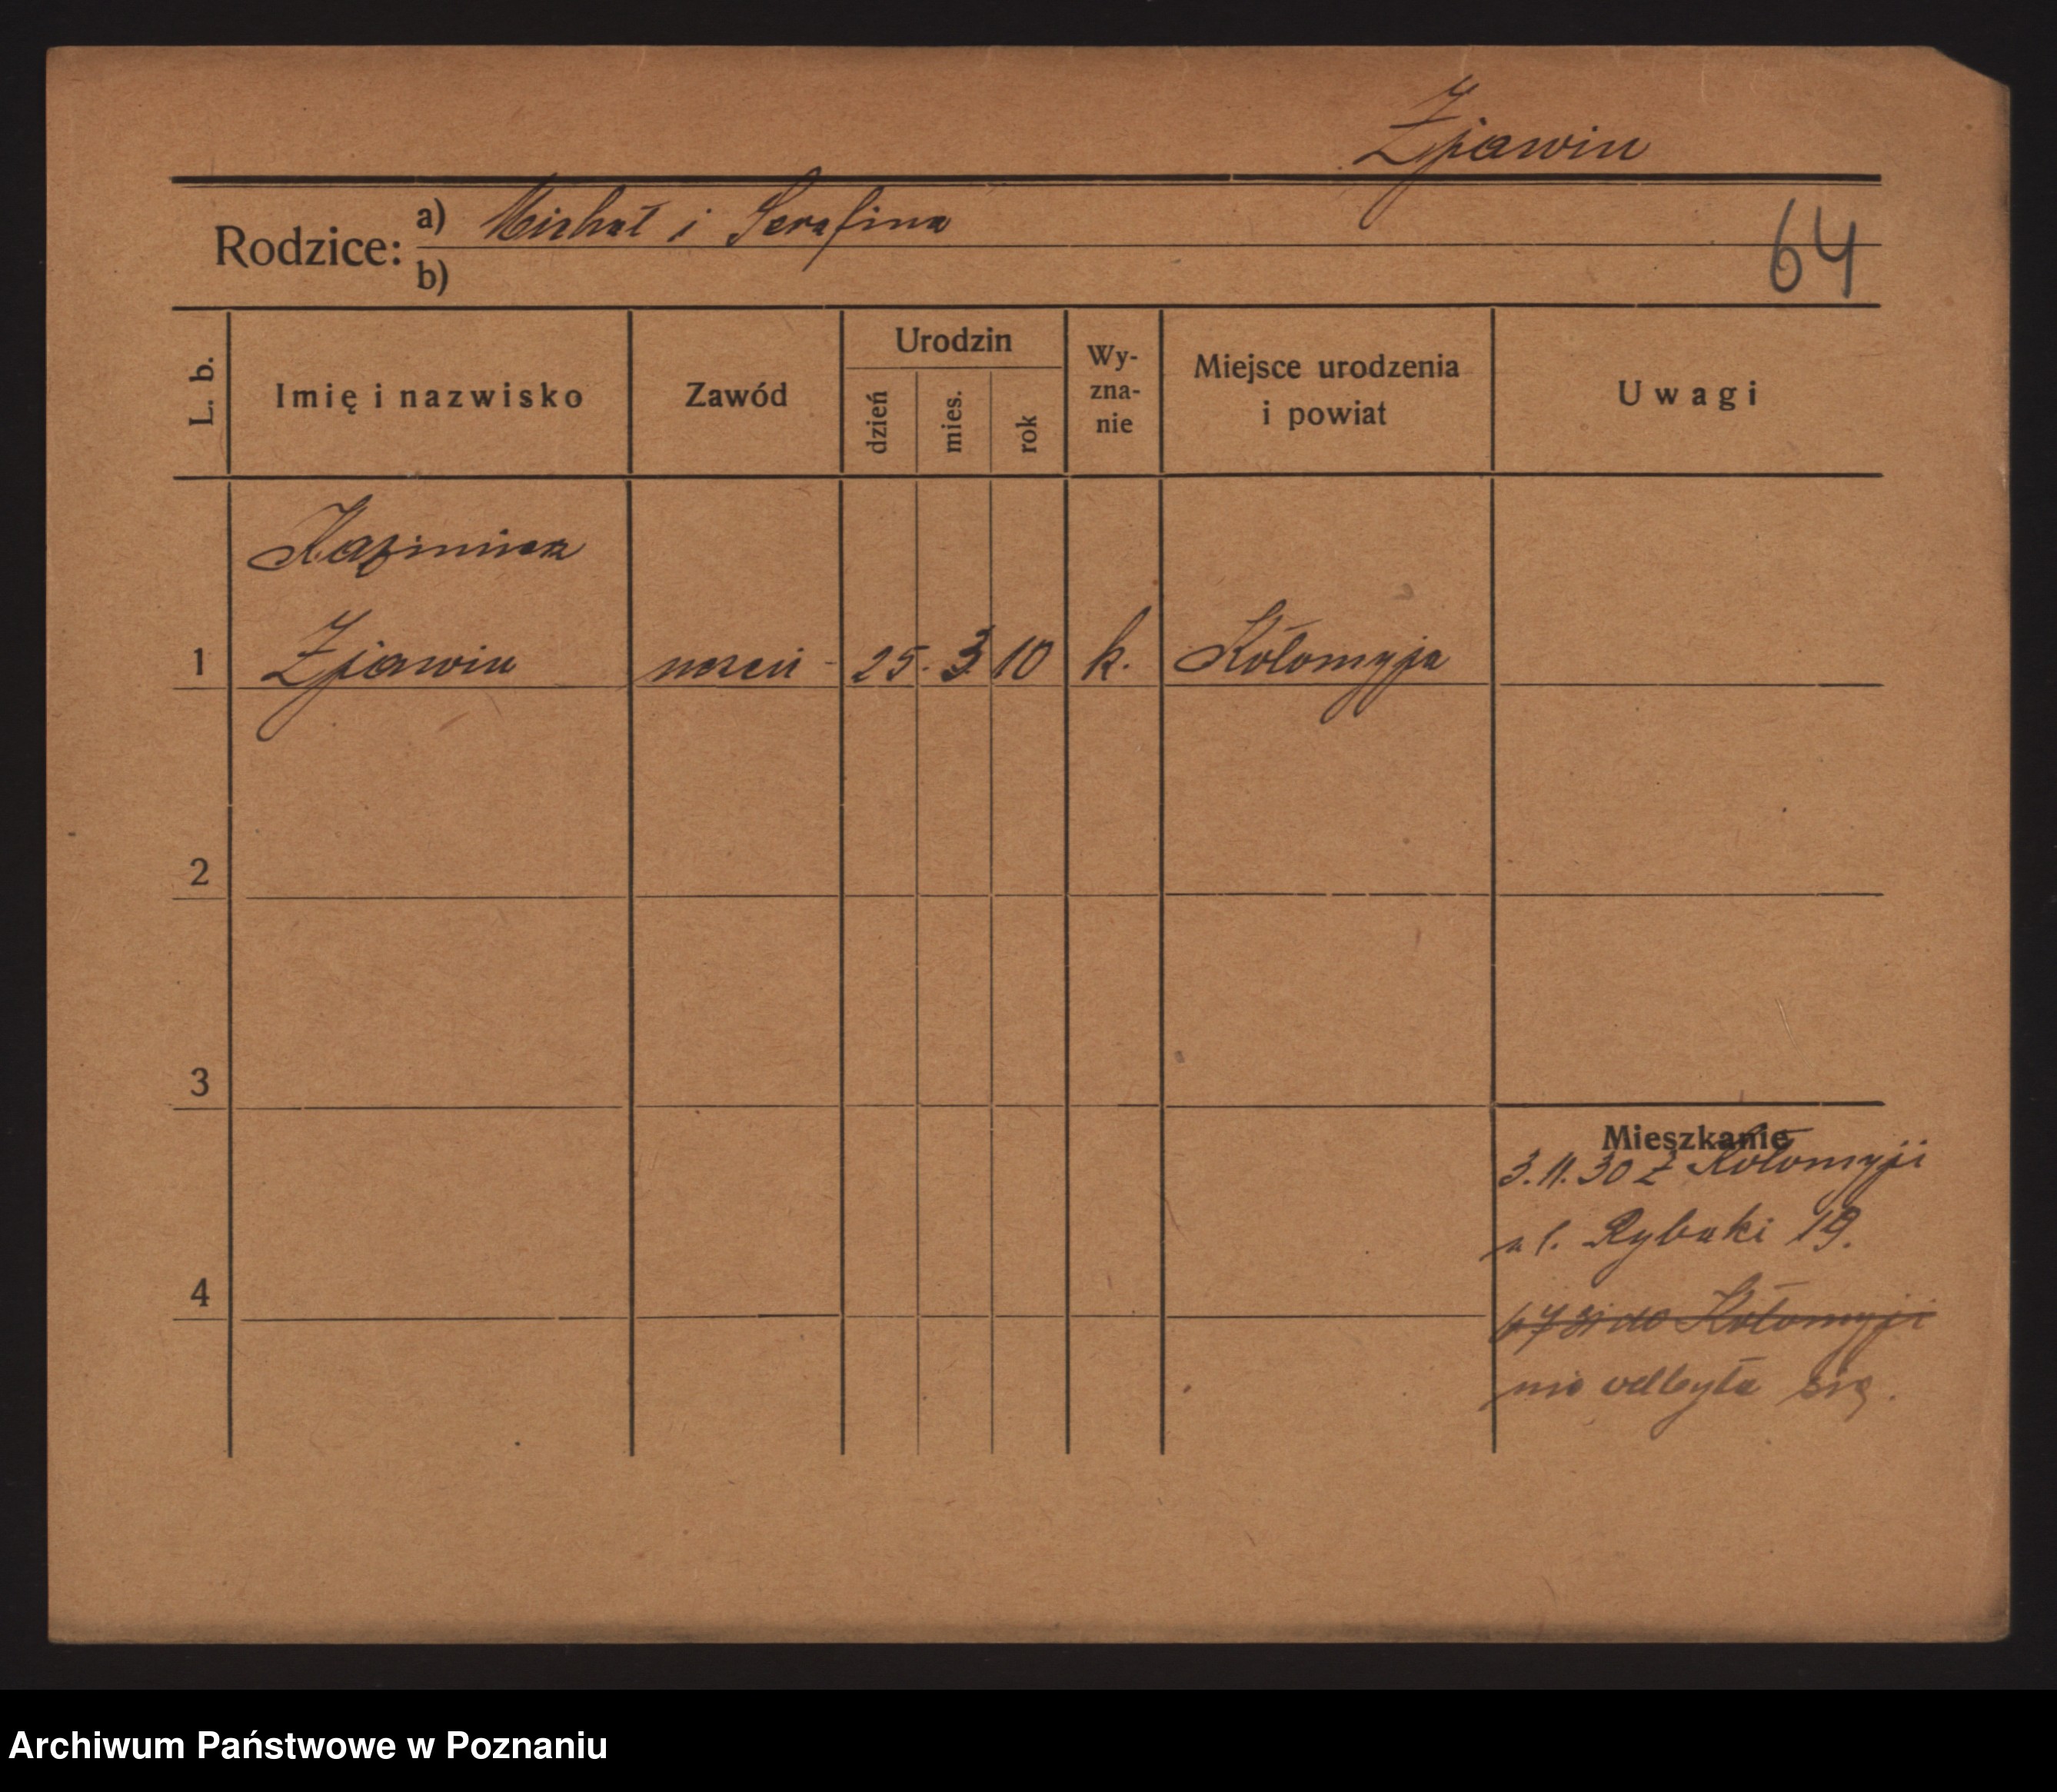 Zjawin
Rodzice: a) Michał i Serafina
b)
64
L. b.
Imię i nazwisko
Zawód
Urodzin
dzień
mies.
rok
Wy-
zna-
nie
Miejsce urodzenia
i powiat
Uwagi
Kazimiera
1 Zjawin uczeń - 25. 3 10 k. Kołomyja
2
3
Mieszkanie
3.11.30 z Kołomyji
ul. Rybaki 19.
4
6 7 31 do Kołomyji
nie odbyła się.
Archiwum Państwowe w Poznaniu